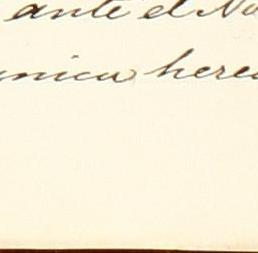 ante el No
unica here